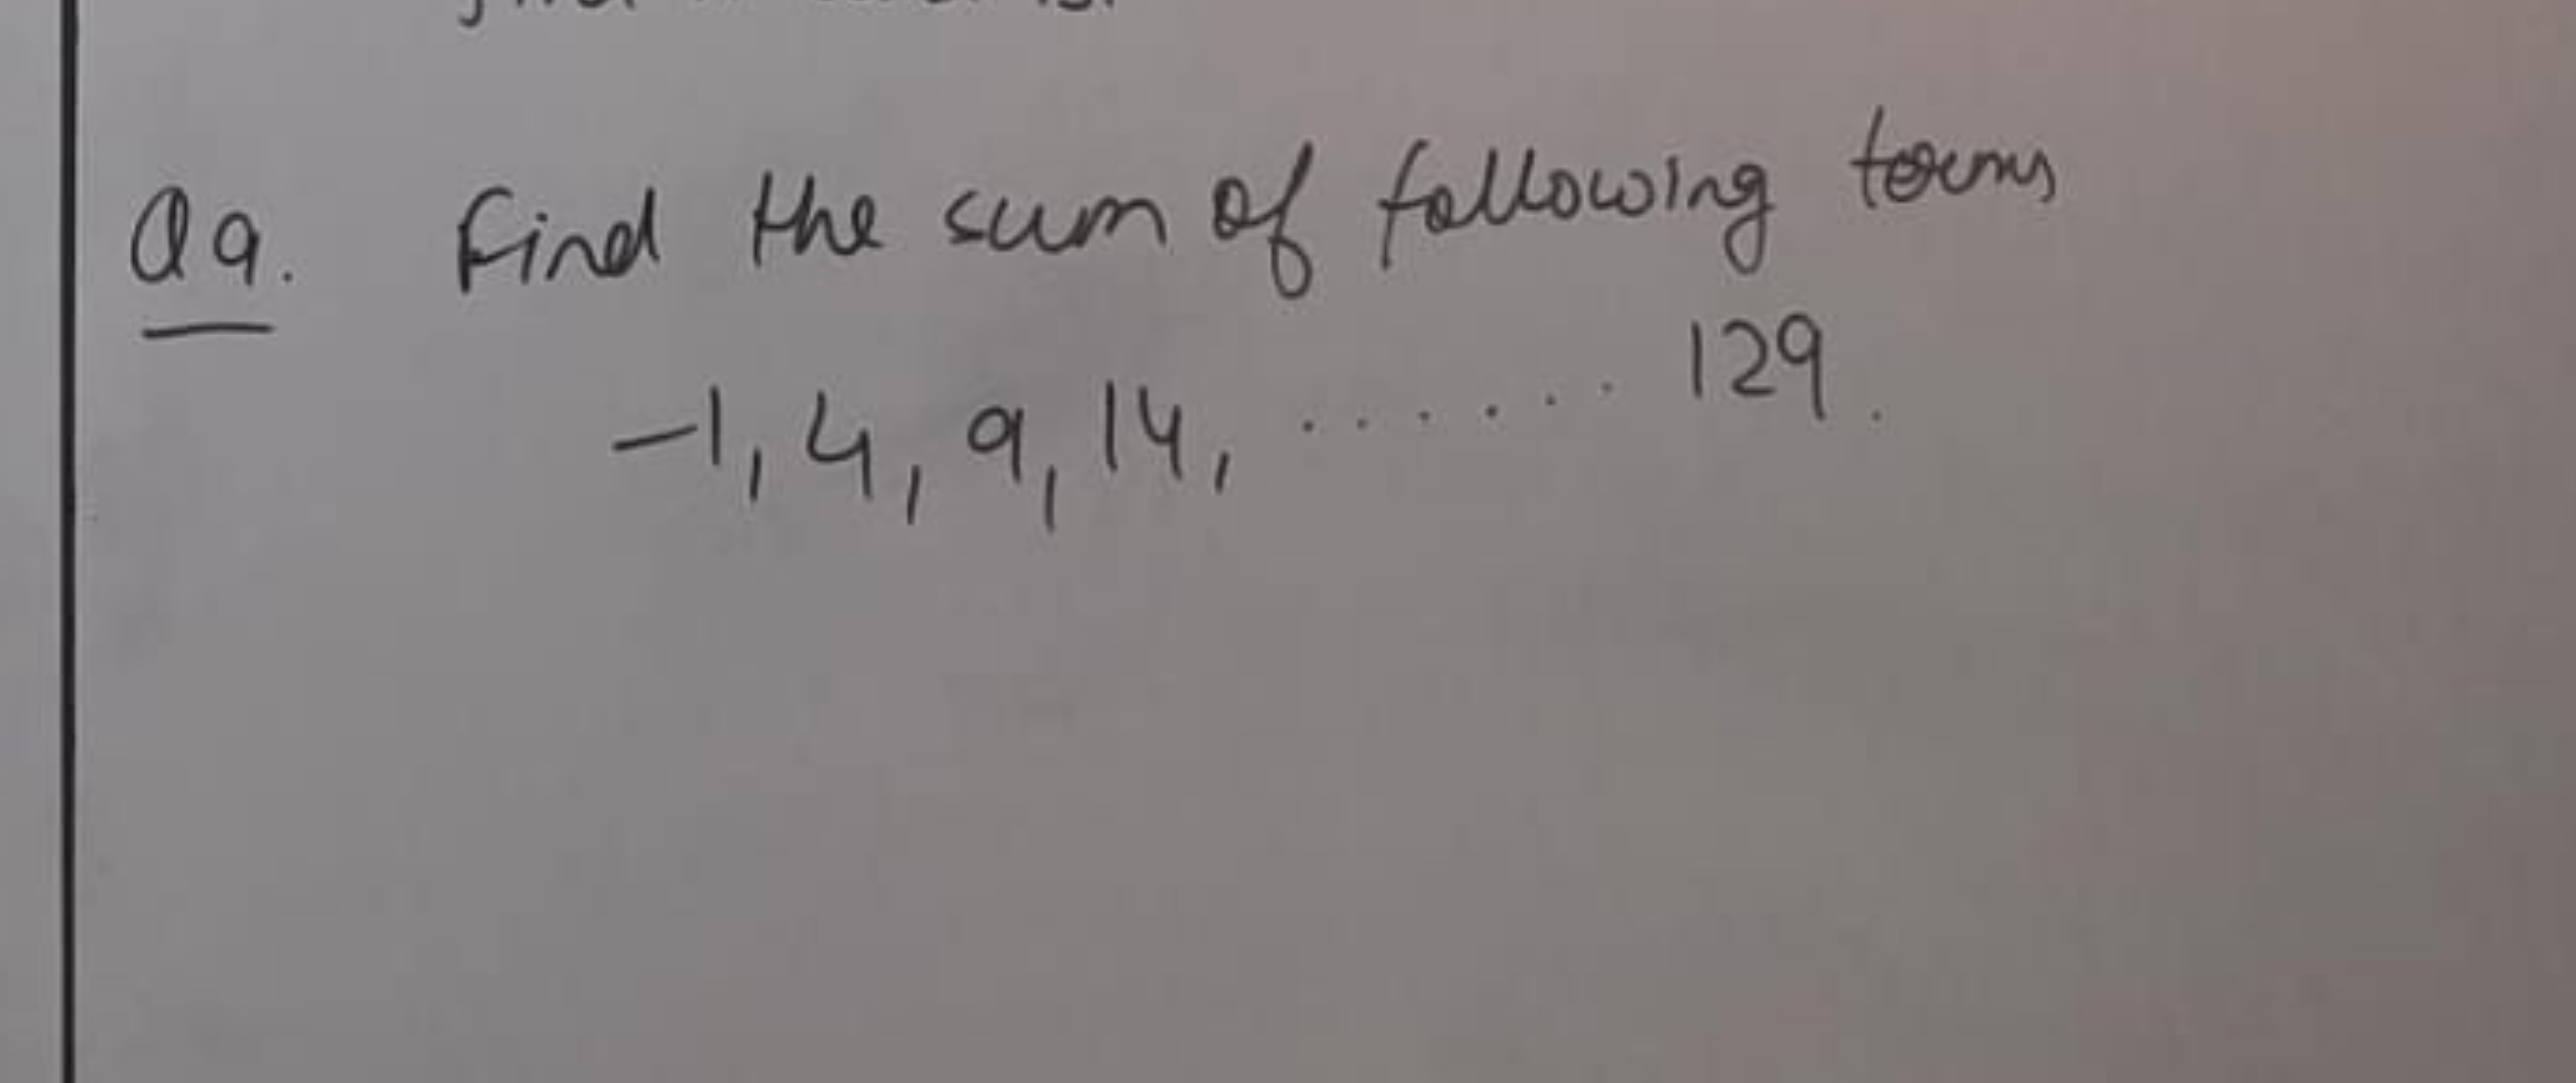 Q9. Find the sum of following terms
-1, 4, 9, 14, ...... 129.